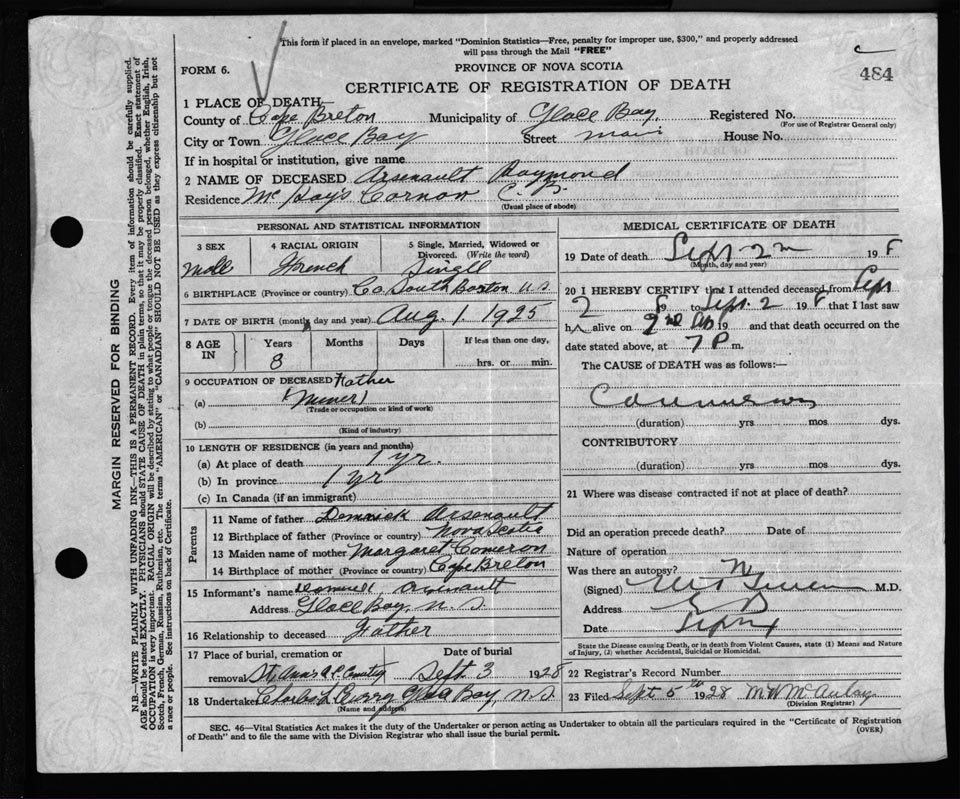 This form if placed in an envelope, marked "Dominion Statistics—Free, penalty for improper use, $300," and properly addressed
will pass through the Mail "FREE"
484
FORM 6.
PROVINCE OF NOVA SCOTIA
CERTIFICATE OF REGISTRATION OF DEATH
1 PLACE OF DEATH
County of Cape Breton Municipality of Glace Bay Registered No.
(For use of Registrar General only)
City or Town Glace Bay Street Main House No.
If in hospital or institution, give name
2 NAME OF DECEASED Arsenault Raymond
Residence McKay's Corner C.B.
(Usual place of abode)
PERSONAL AND STATISTICAL INFORMATION
3 SEX
Male
4 RACIAL ORIGIN
French
5 Single, Married, Widowed or
Divorced. (Write the word)
Singll
6 BIRTHPLACE (Province or country) Co. South Boston U.S.
7 DATE OF BIRTH (month, day and year) Aug. 1. 1925
8 AGE
IN
Years
3
Months
Days
If less than one day,
hrs. or min.
9 OCCUPATION OF DECEASED Father
(a) (Miner)
(Trade or occupation or kind of work)
(b)
(Kind of industry)
10 LENGTH OF RESIDENCE (in years and months)
(a) At place of death 1 yr.
(b) In province 1 yr
(c) In Canada (if an immigrant)
Parents
11 Name of father Arsenault
12 Birthplace of father (Province or country) Nova Scotia
13 Maiden name of mother Margaret Cameron
14 Birthplace of mother (Province or country) Cape Breton
15 Informant's name Arsenault
Address Glace Bay, N.S.
16 Relationship to deceased Father
17 Place of burial, cremation or
removal St. Anns R.C. Cemetry
Date of burial
Sept 3 1928
18 Undertaker Charles L Curry Glace Bay, N.S.
(Name and address)
MEDICAL CERTIFICATE OF DEATH
19 Date of death Sept 2 198
(Month, day and year)
20 I HEREBY CERTIFY that I attended deceased from Sept
2 8 to Sept. 2 198 that I last saw
h alive on 2nd 19 and that death occurred on the
date stated above, at 7 P m.
The CAUSE of DEATH was as follows:—
(duration) yrs mos dys.
CONTRIBUTORY
(duration) yrs mos dys.
21 Where was disease contracted if not at place of death?
Did an operation precede death? Date of
Nature of operation
Was there an autopsy? N
(Signed) M.D.
Address
Date
State the Disease causing Death, or in death from Violent Causes, state (1) Means and Nature
of Injury, (2) whether Accidental, Suicidal or Homicidal.
22 Registrar's Record Number
23 Filed Sept 5th 1928 M W McAulay
(Division Registrar)
SEC. 46—Vital Statistics Act makes it the duty of the Undertaker or person acting as Undertaker to obtain all the particulars required in the "Certificate of Registration
of Death" and to file the same with the Division Registrar who shall issue the burial permit.
(OVER)
MARGIN RESERVED FOR BINDING
N.B.—WRITE PLAINLY WITH UNFADING INK—THIS IS A PERMANENT RECORD. Every item of information should be carefully supplied.
AGE should be stated EXACTLY. PHYSICIANS should STATE CAUSE OF DEATH in plain terms, so that it may be properly classified. Exact statement of
OCCUPATION is very important. RACIAL ORIGIN will be described by stating to what people or tongue the deceased person belonged, whether English, Irish,
Scotch, French, German, Russian, Ruthenian, etc. The terms "AMERICAN" or "CANADIAN" SHOULD NOT BE USED as they express citizenship but not
a race or people. See instructions on back of Certificate.